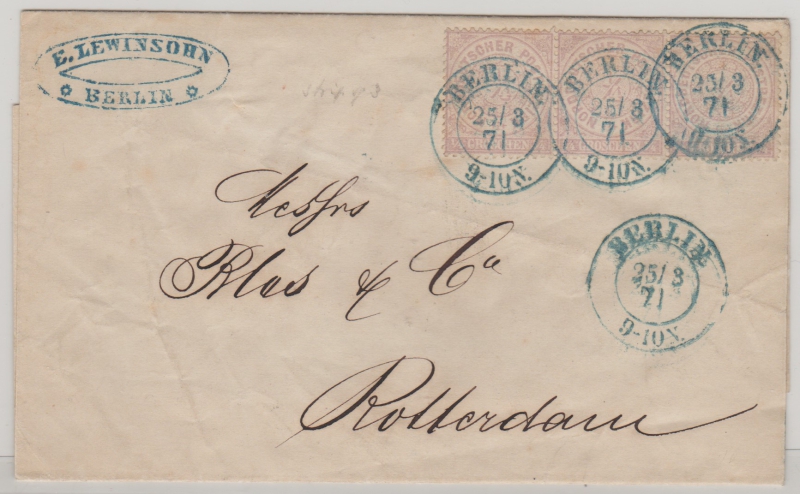 E. LEWINSOHN
BERLIN
BERLIN
25/3
71
9-10N.
BERLIN
25/3
71
9-10N.
BERLIN
25/3
71
9-10N.
BERLIN
25/3
71
9-10N.
Messrs
Blas & Co
Rotterdam